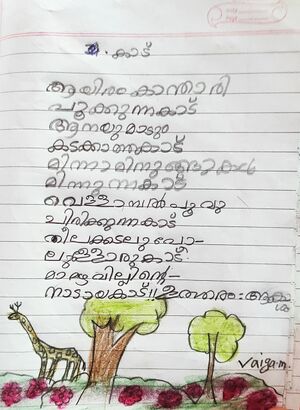 2. കാട്
ആയിരം കാന്താരി
പൂക്കുന്നകാട്
ആനയുമാടും
കടക്കാത്തകാട്
മിന്നാമിനുങ്ങുകൾ
മിന്നുന്നകാട്
വെള്ളാമ്പൽ പൂവു
ചിരിക്കുന്നകാട്
നീലക്കടലുപോ-
ലുള്ളൊരുകാട്
മാമഴവില്ലിൻ്റെ-
നാടായകാട്!! ഉത്തരം: ആകാശം
Vaiga.m.